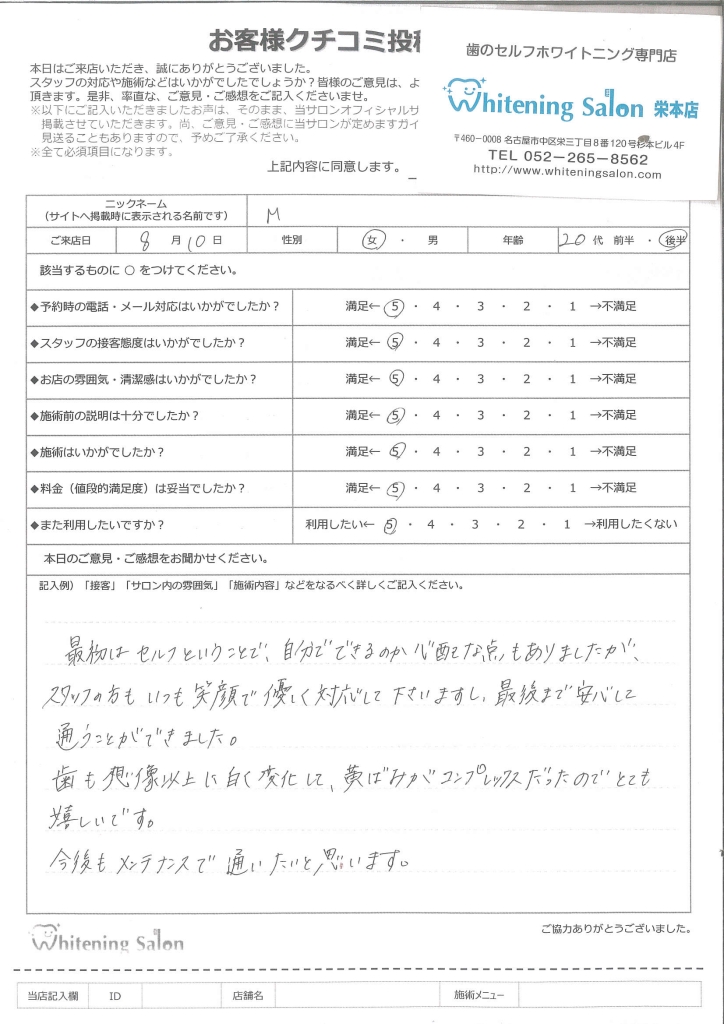 お客様クチコミ投稿
本日はご来店いただき、誠にありがとうございました。
スタッフの対応や施術などはいかがでしたでしょうか？皆様のご意見は、よ
頂きます。是非、率直な、ご意見・ご感想をご記入くださいませ。
※以下にご記入いただきましたお声は、そのまま、当サロンオフィシャルサ
掲載させていただきます。尚、ご意見・ご感想に当サロンが定めますガイ
見送ることもありますので、予めご了承ください。
※全て必須項目になります。
上記内容に同意します。
歯のセルフホワイトニング専門店
Whitening Salon 栄本店
〒460-0008 名古屋市中区栄三丁目8番120号杉本ビル4F
TEL 052-265-8562
http://www.whiteningsalon.com
ニックネーム
（サイトへ掲載時に表示される名前です） M
ご来店日 8 月 10 日 性別 女 ・ 男 年齢 20 代 前半 ・ 後半
該当するものに ○ をつけてください。
◆予約時の電話・メール対応はいかがでしたか？ 満足← 5 ・ 4 ・ 3 ・ 2 ・ 1 →不満足
◆スタッフの接客態度はいかがでしたか？ 満足← 5 ・ 4 ・ 3 ・ 2 ・ 1 →不満足
◆お店の雰囲気・清潔感はいかがでしたか？ 満足← 5 ・ 4 ・ 3 ・ 2 ・ 1 →不満足
◆施術前の説明は十分でしたか？ 満足← 5 ・ 4 ・ 3 ・ 2 ・ 1 →不満足
◆施術はいかがでしたか？ 満足← 5 ・ 4 ・ 3 ・ 2 ・ 1 →不満足
◆料金（値段的満足度）は妥当でしたか？ 満足← 5 ・ 4 ・ 3 ・ 2 ・ 1 →不満足
◆また利用したいですか？ 利用したい← 5 ・ 4 ・ 3 ・ 2 ・ 1 →利用したくない
本日のご意見・ご感想をお聞かせください。
記入例）「接客」「サロン内の雰囲気」「施術内容」などをなるべく詳しくご記入ください。
最初は セルフということで、自分でできるのか心配な点もありましたが、
スタッフの方も いつも 笑顔で優しく対応して下さいますし、最後まで安心して
通うことができました。
歯も想像以上に白く変化して、黄ばみがコンプレックスだったのでとても
嬉しいです。
今後もメンテナンスで通いたいと思います。
ご協力ありがとうございました。
Whitening Salon
当店記入欄 ID 店舗名 施術メニュー